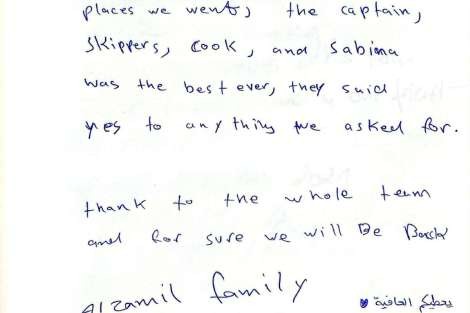 places we went, the captain,
skippers, cook, and Sabina
was the best ever, they said
yes to anything we asked for.
thank to the whole team
and for sure we will Be Back
Alzamil family
يعطيكم العافية